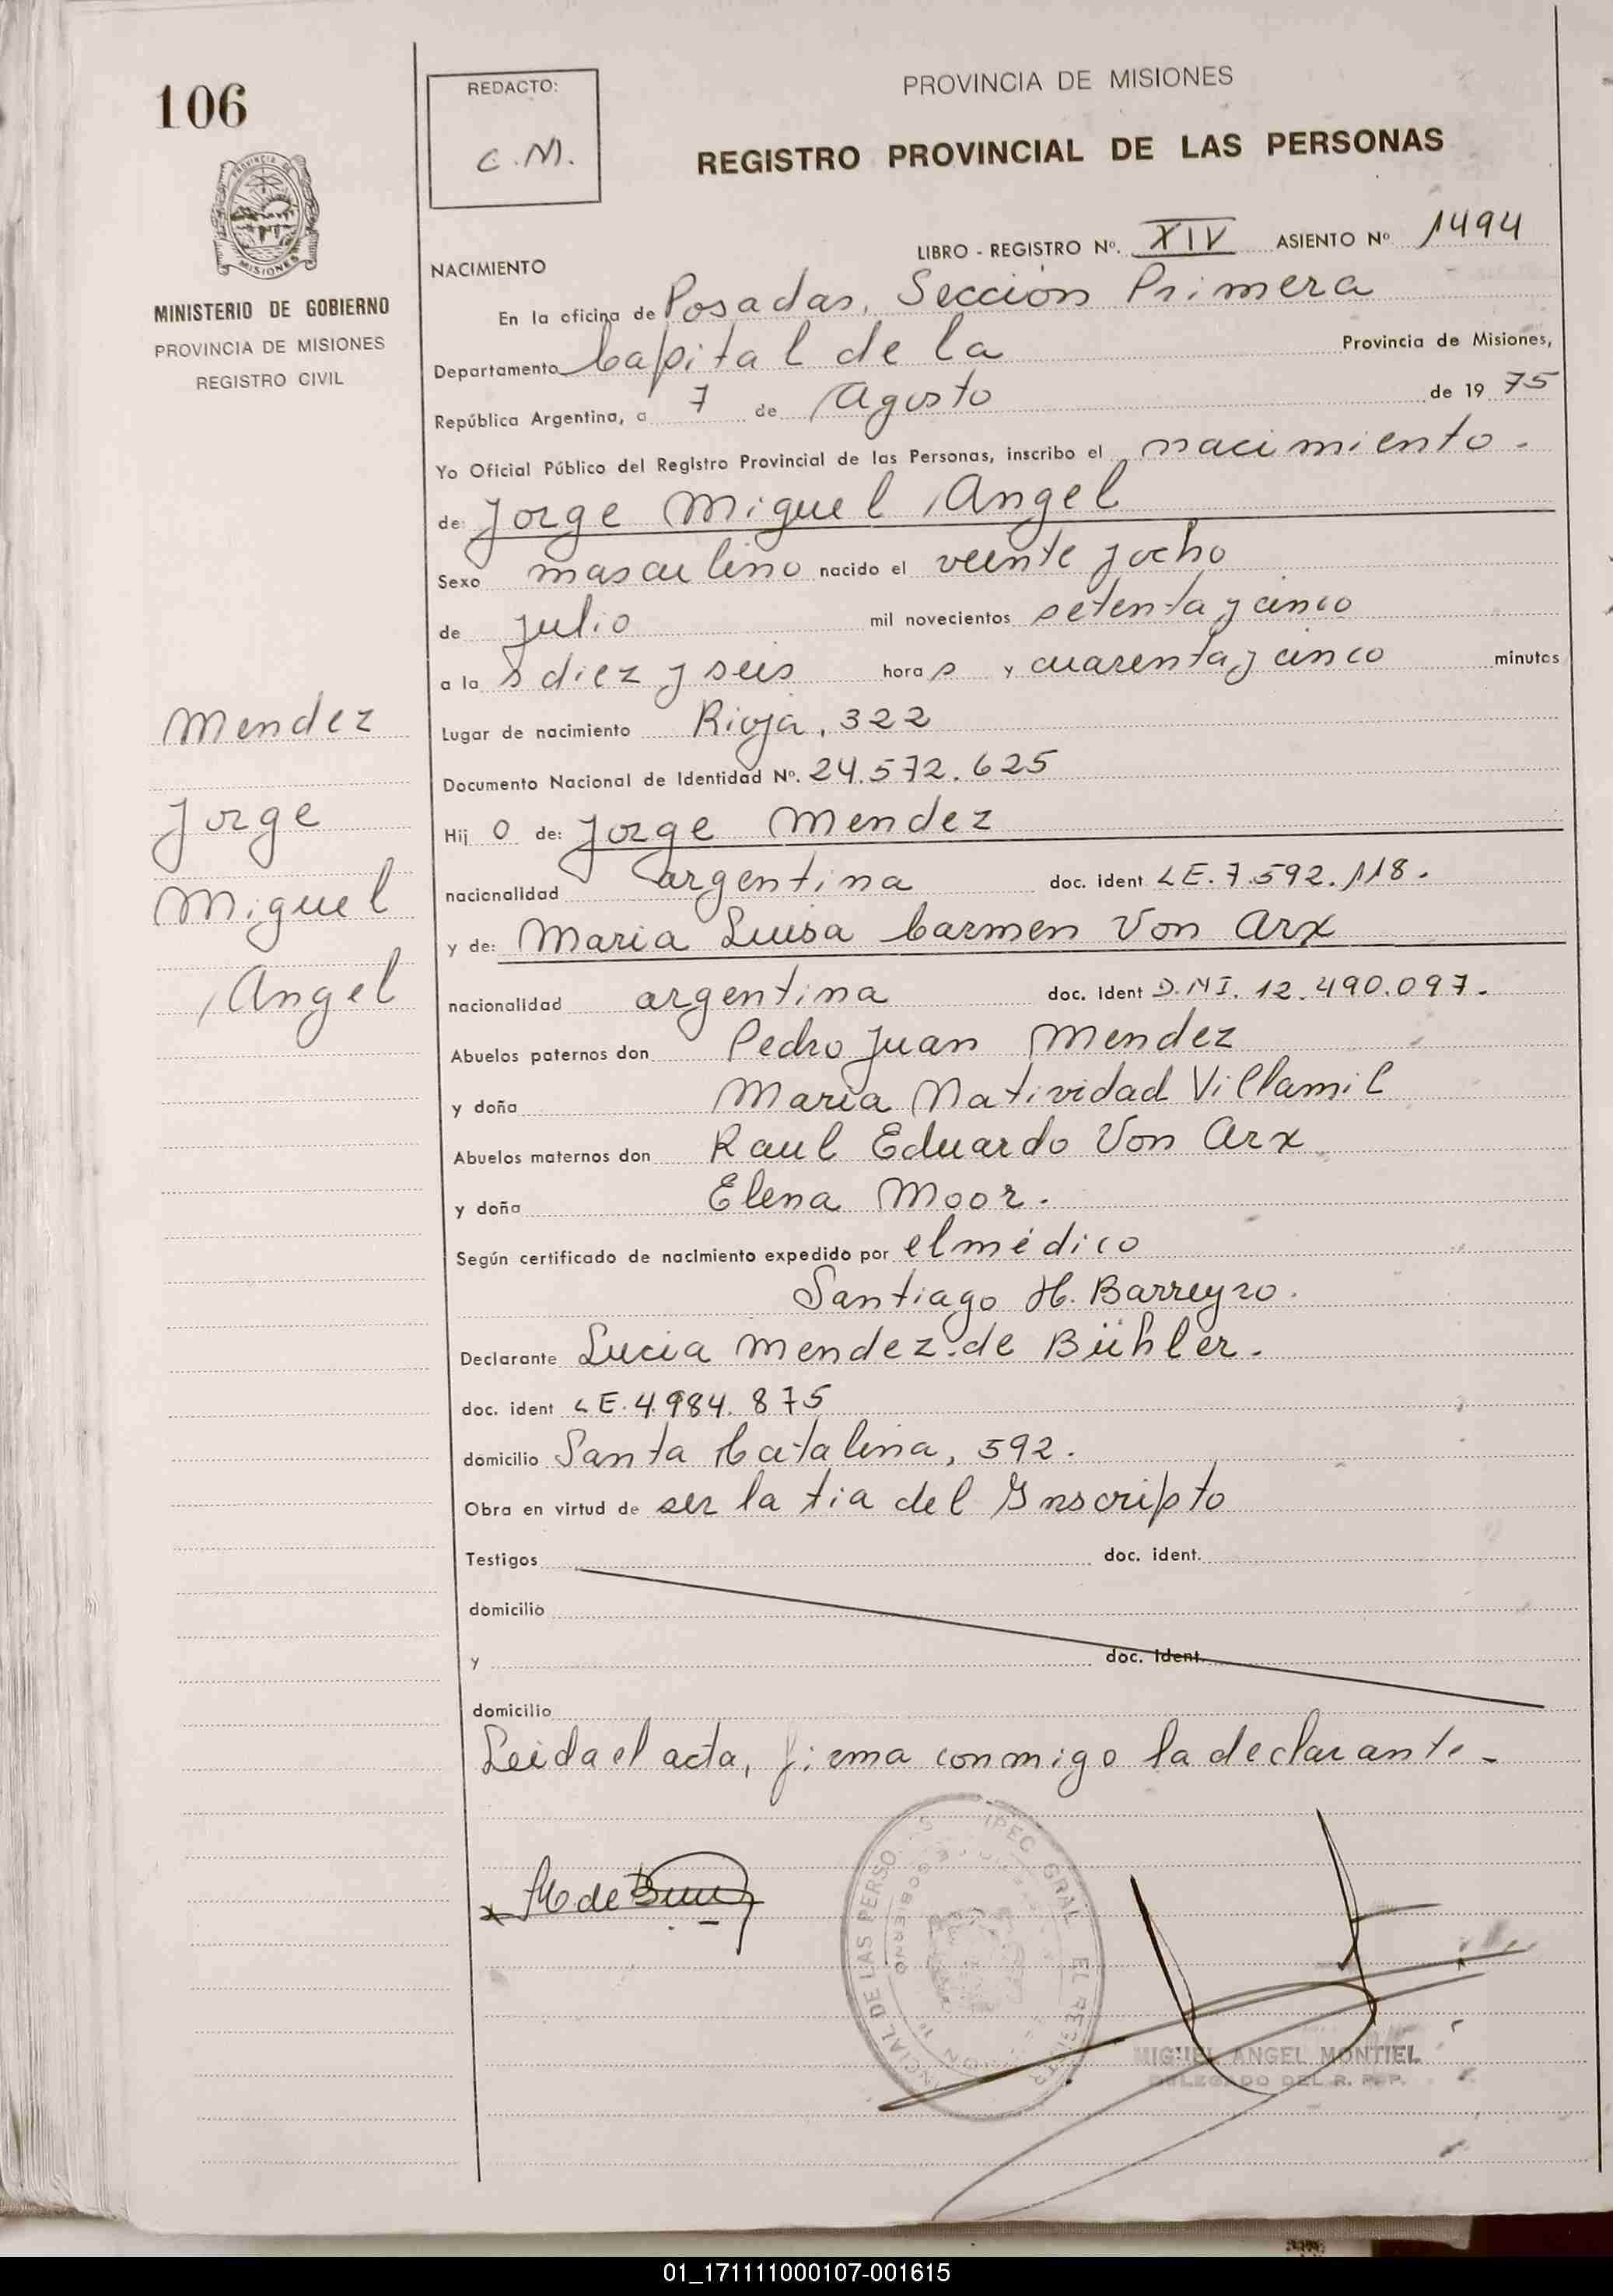 106
REDACTO:
C.M.
PROVINCIA DE MISIONES
REGISTRO PROVINCIAL DE LAS PERSONAS
LIBRO - REGISTRO Nº. XIV ASIENTO Nº 1494
MISIONES
MINISTERIO DE GOBIERNO
PROVINCIA DE MISIONES
REGISTRO CIVIL
NACIMIENTO
En la oficina de Posadas, Sección Primera
Departamento Capital de la Provincia de Misiones,
República Argentina, a 7 de Agosto de 1975
Yo Oficial Público del Registro Provincial de las Personas, inscribo el nacimiento.
de: Jorge Miguel Angel
Sexo masculino nacido el veinte y ocho
de Julio mil novecientos setenta y cinco
a la s diez y seis hora s y cuarenta y cinco minutos
Lugar de nacimiento Rioja, 322
Documento Nacional de Identidad Nº. 24.572.625
Hij o de: Jorge Mendez
nacionalidad argentina doc. ident LE. 7.592.118.
y de: Maria Luisa Carmen Von Arx
nacionalidad argentina doc. ident D.N.I. 12.490.097.
Abuelos paternos don Pedro Juan Mendez
y doña Maria Natividad Villamil
Abuelos maternos don Raul Eduardo Von Arx
y doña Elena Moor.
Según certificado de nacimiento expedido por el médico
Santiago H. Barreyro.
Declarante Lucia Mendez de Bühler.
doc. ident LE. 4.984.875
domicilio Santa Catalina, 592.
Obra en virtud de ser la tia del Inscripto
Testigos doc. ident.
domicilio
y doc. ident.
domicilio
Leida el acta, firma conmigo la declarante.
Mendez
Jorge
Miguel
Angel
MIGUEL ANGEL MONTIEL
DELEGADO DEL R. P. P.
01_171111000107-001615